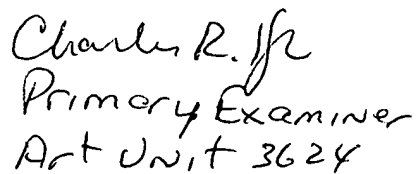 Charles R.
Primary Examiner
Art Unit 3624